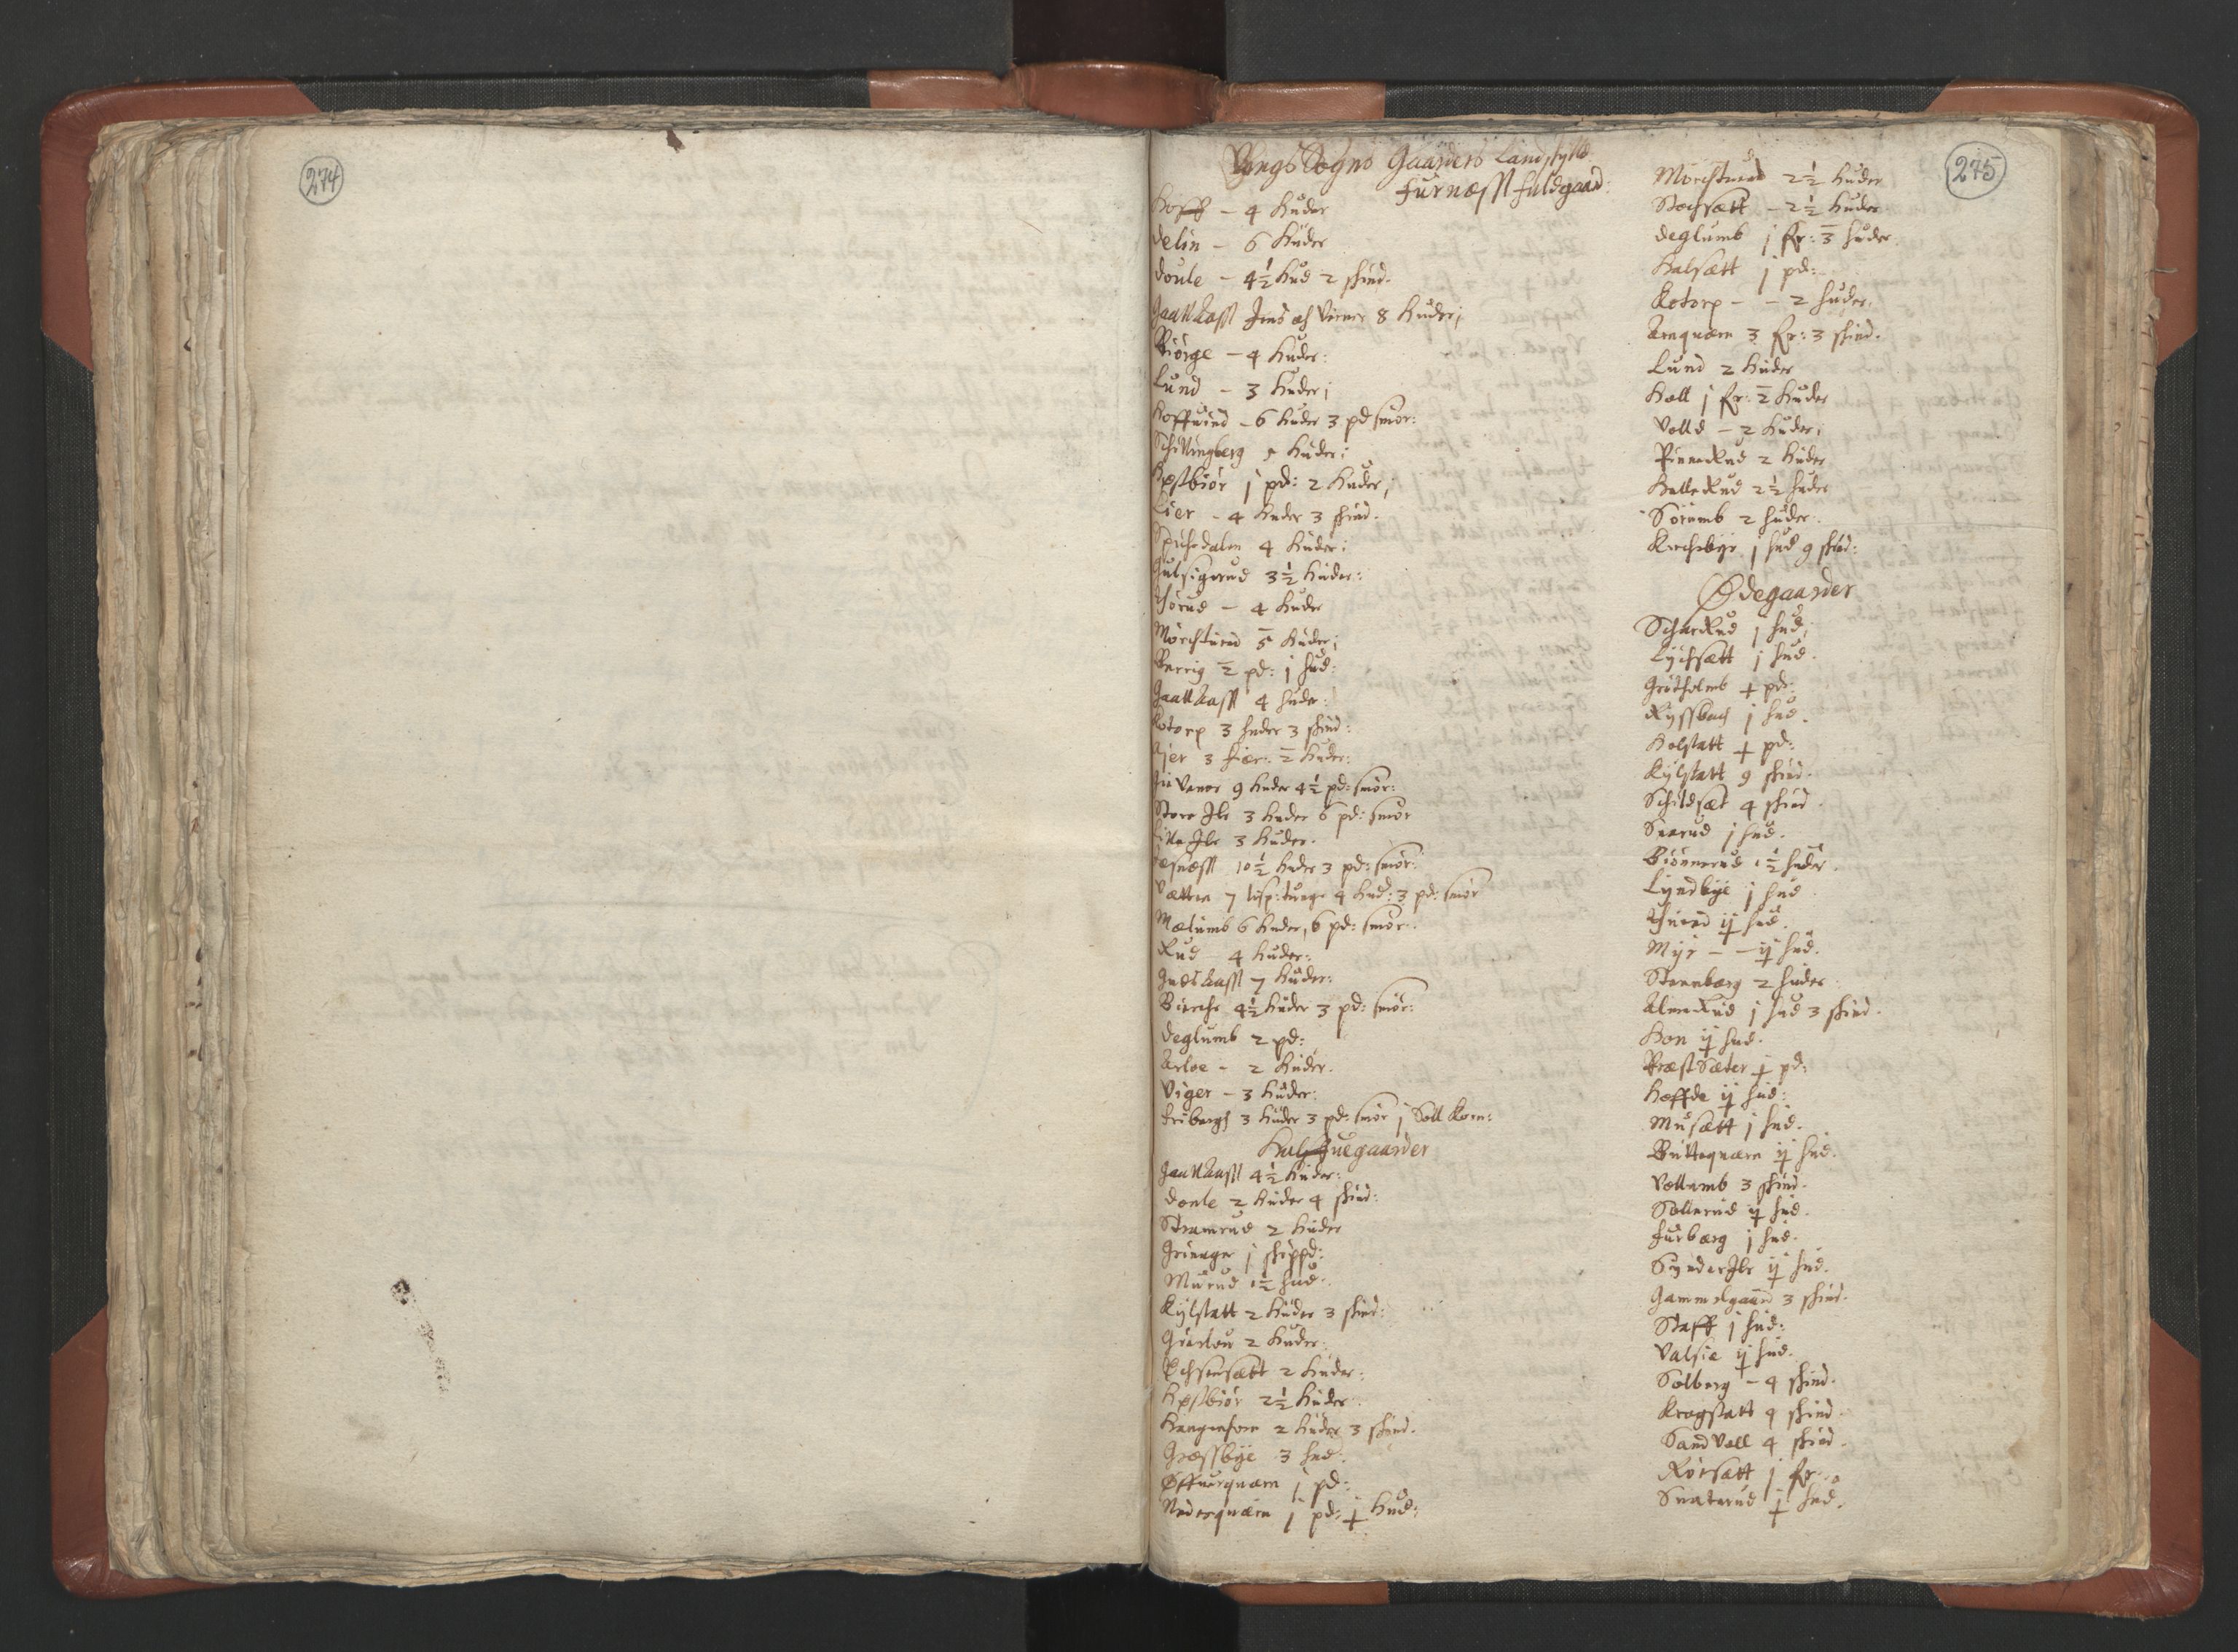 274
275
Vangs Sogns Gaarders Landskyld
Furnæss fuldgaard:
Hoff – 4 Huder
Delin – 6 Huder
Doule – 4½ Hud 2 skind.
Gaallaass Jens af Virner 8 Huder;
Biørge – 4 Huder:
Lund – 3 Huder;
Hoffuind – 6 Huder 3 pd smør:
Schillingberg 5 Huder:
Hestbiør j pd: 2 Huder;
Lier – 4 Huder 3 skind.
Spichdalen 4 Huder:
Gulsigrud 3½ Huder:
Thorud – 4 Huder
Morchturid 5 Huder;
Berrig ½ pd: j hud:
Gaallaass 4 huder:
Kotorp 3 huder 3 skind:
3 fier: 2 Huder:
9 Huder 4½ pd: smør:
Store Jle 3 Huder 6 pd: smør
Lille Jle 3 Huder.
Jesnæss 10½ Huder 3 pd: smør:
Vætten 7 lisp: tunge 4 Hud: 3 pd: smør
Mælumb 6 Huder, 6 pd: smør.
Rud – 4 Huder:
Gudslaass 7 Huder:
Birche 4½ Huder 3 pd: smør:
Deglumb 2 pd:
Arloe – 2 Huder.
Viger – 3 Huder:
Friberg 3 Huder 3 pd: smør j Soll Korn:
Halffuegaarder
Gaallaass 4½ Huder:
Doule 2 Huder 4 skind:
Stramrud 2 Huder
Grinager j skippd:
Murud 1½ hud:
Kylstatt 2 Huder 3 skind:
2 Huder:
Ochsensætt 2 Huder:
Hestbiør 2½ Huder.
2 Huder 3 skind.
Græssbye 3 hud.
Øffuerquærn j pd:
Nederquærn j pd: ɉ Hud:
Morchturid 2½ Huder
Stochsætt – 2½ Huder
Deglumb j fr: 3 huder.
Halsætt j pd:
Kotorp – – 2 huder.
Arnquærn 3 fr: 3 skind.
Lund 2 Huder
Holl j fr: 2 Huder
Volld – 2 Huder;
Finnerud 2 Huder
Hallerud 2½ huder
Sørumb 2 huder.
Kirchebye j hud 9 skind:
Ødegaarder
Scharrud j hud;
Lychsætt j hud.
Gritholmb ɉ pd:
Ryssbach j hud.
Holstatt ɉ pd:
Kylstatt 9 skind.
Schildsæt 4 skind.
Snarud j hud.
Biønnerud 1½ huder.
Lyndbye j hud.
Thurid iɉ hud.
Myr – – iɉ hud.
Stennberg 2 huder.
Almerud j hud 3 skind.
Hon iɉ hud.
Præstsæter ɉ pd:
Hoffde iɉ hud:
Musætt j hud.
Butterquærn iɉ hud.
Vollumb 3 skind.
Sollerud iɉ hud.
Furberg j hud.
Synder Jle iɉ hud.
Gammelgaard 3 skind.
Staff j hud:
Valsie iɉ hud.
Solberg – 4 skind.
Krogstatt 4 skind
Sandvoll 4 skind.
Rørsætt j fr:
Snaterud ɉ hud.